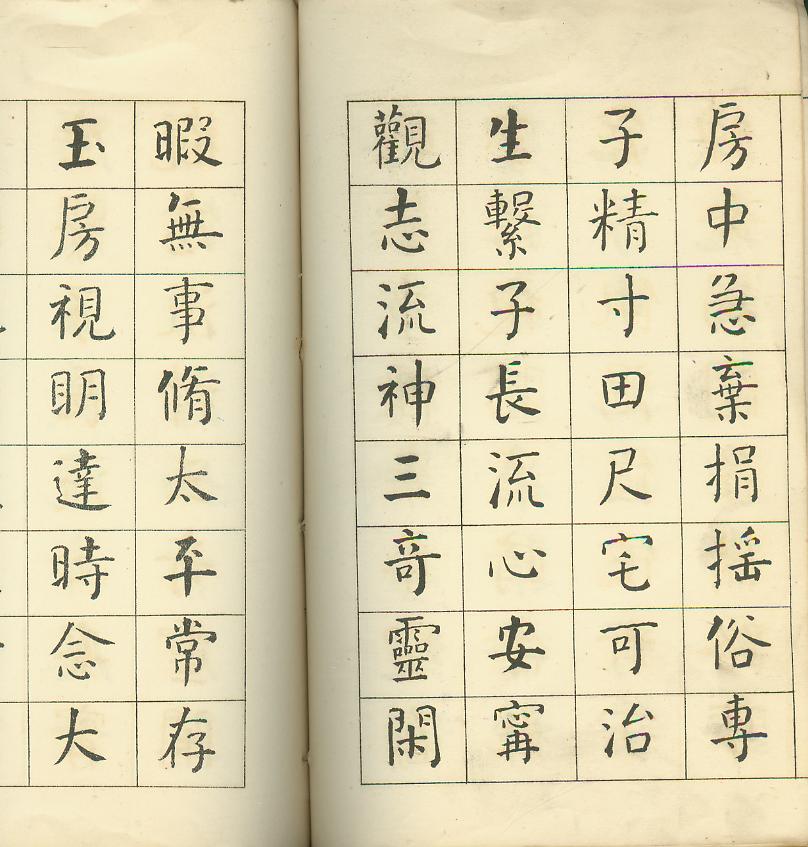 房中急棄捐搖俗專
子精寸田尺宅可治
生繫子長流心安寗
觀志流神三奇靈閑
暇無事脩太平常存
玉房視明達時念大